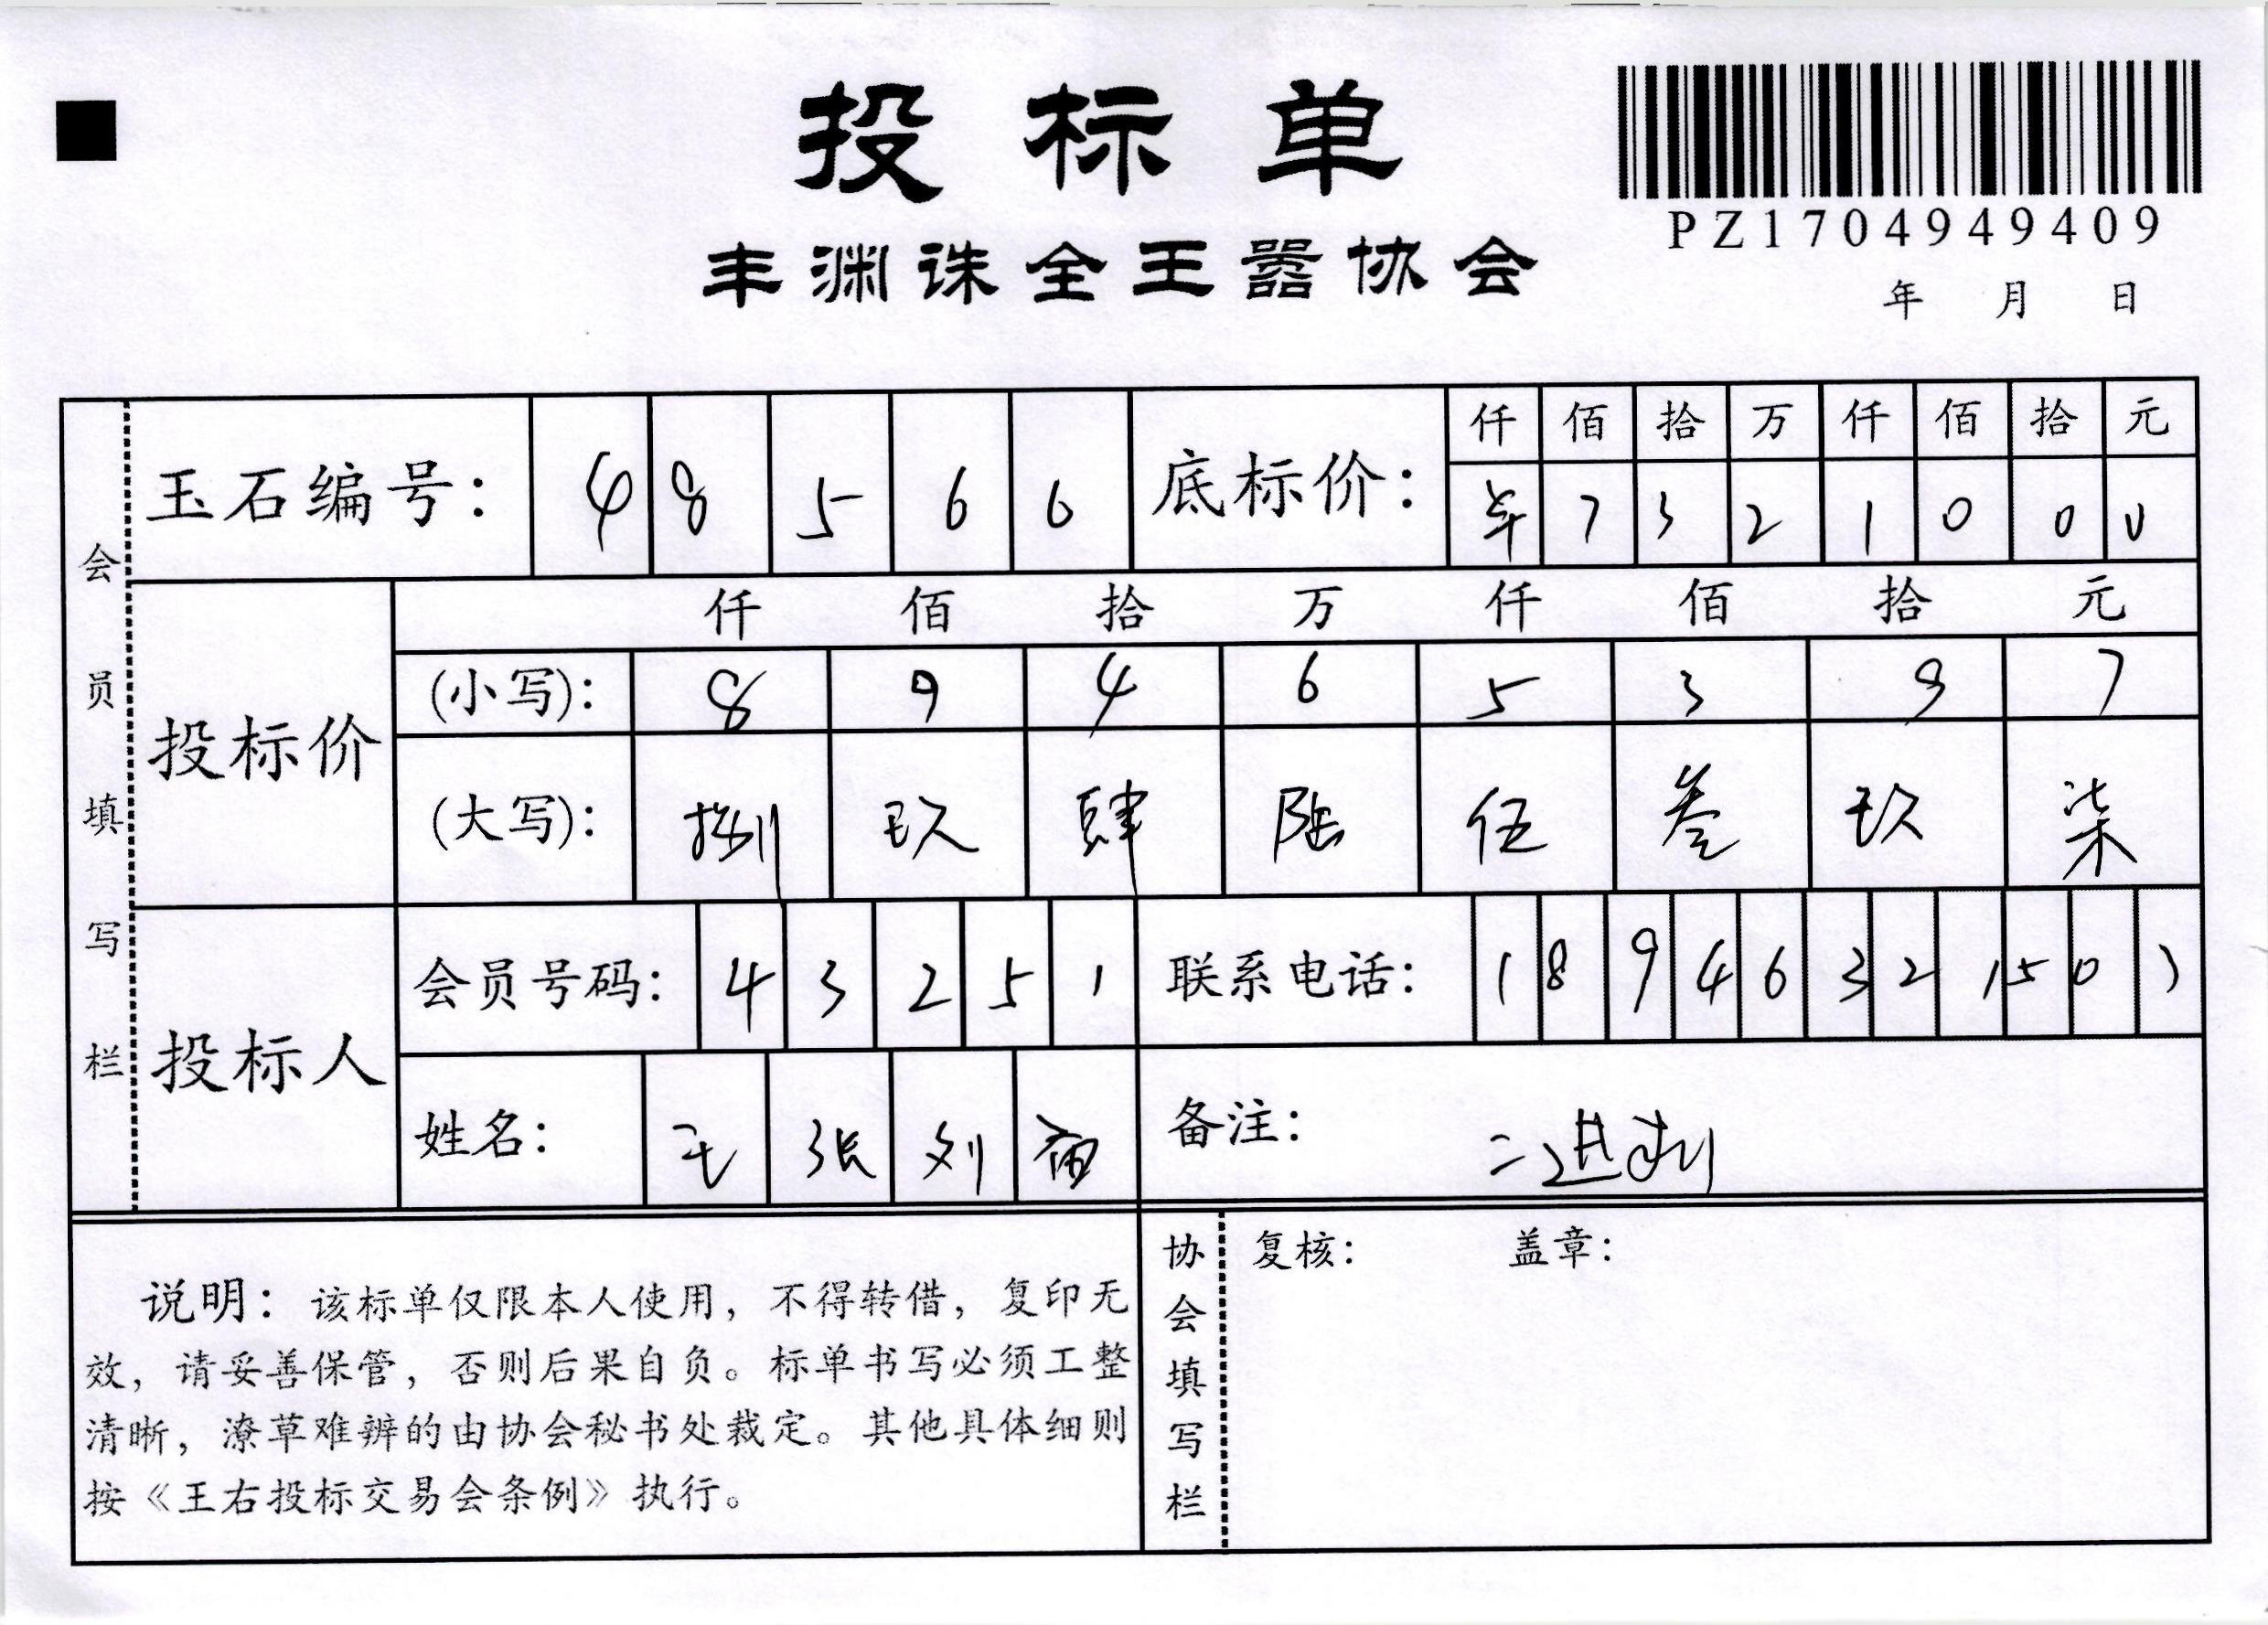 投标单
PZ1704949409
丰渊诛全王嚣协会
年 月 日
会员填写栏
玉石编号: 4 8 5 6 6
底标价: 仟 佰 拾 万 仟 佰 拾 元
7 3 2 1 0 0 0
投标价
仟 佰 拾 万 仟 佰 拾 元
(小写): 8 9 4 6 5 3 9 7
(大写): 捌 玖 肆 陆 伍 叁 玖 柒
投标人
会员号码: 4 3 2 5 1
联系电话: 1 8 9 4 6 3 2 1 5 0
姓名: 王 张 刘
备注: 二进制
说明:该标单仅限本人使用,不得转借,复印无
效,请妥善保管,否则后果自负。标单书写必须工整
清晰,潦草难辨的由协会秘书处裁定。其他具体细则
按《王右投标交易会条例》执行。
协会填写栏
复核: 盖章: